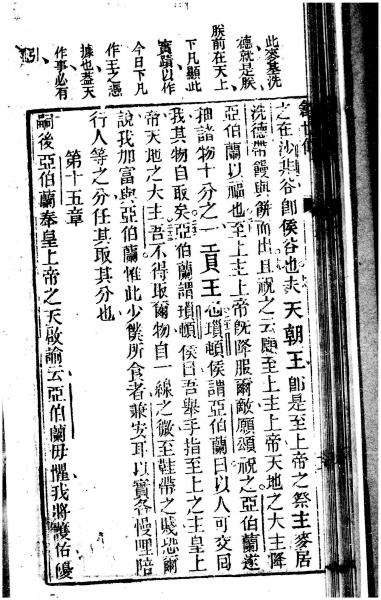 此麥基洗
德就是朕
朕前在天上
下凡顯此
實蹟以作
今日下凡
作王之憑
據也蓋天
作事必有
引
之在沙共谷即侯谷也夫天朝王即是至上帝之祭主麥居
洗德帶饅與餅而出且祝之云願至上主上帝天地之大主降
亞伯蘭以福也至上主上帝既降服爾敵願頌祝之亞伯蘭遂
抽諸物十分之一貢王也瑣頓侯謂亞伯蘭曰以人可交囘
我其物自取矣亞伯蘭謂瑣頓侯曰吾舉手指至上之主皇上
帝天地之大主吾不得取爾物自一線之微至鞋帶之賤恐爾
說我加富與亞伯蘭惟此少僕所食者兼安耳以實各慢哩陪
行人等之分任其取其分也
第十五章
嗣後亞伯蘭奉皇上帝之天啟諭云亞伯蘭毋懼我將護佑優